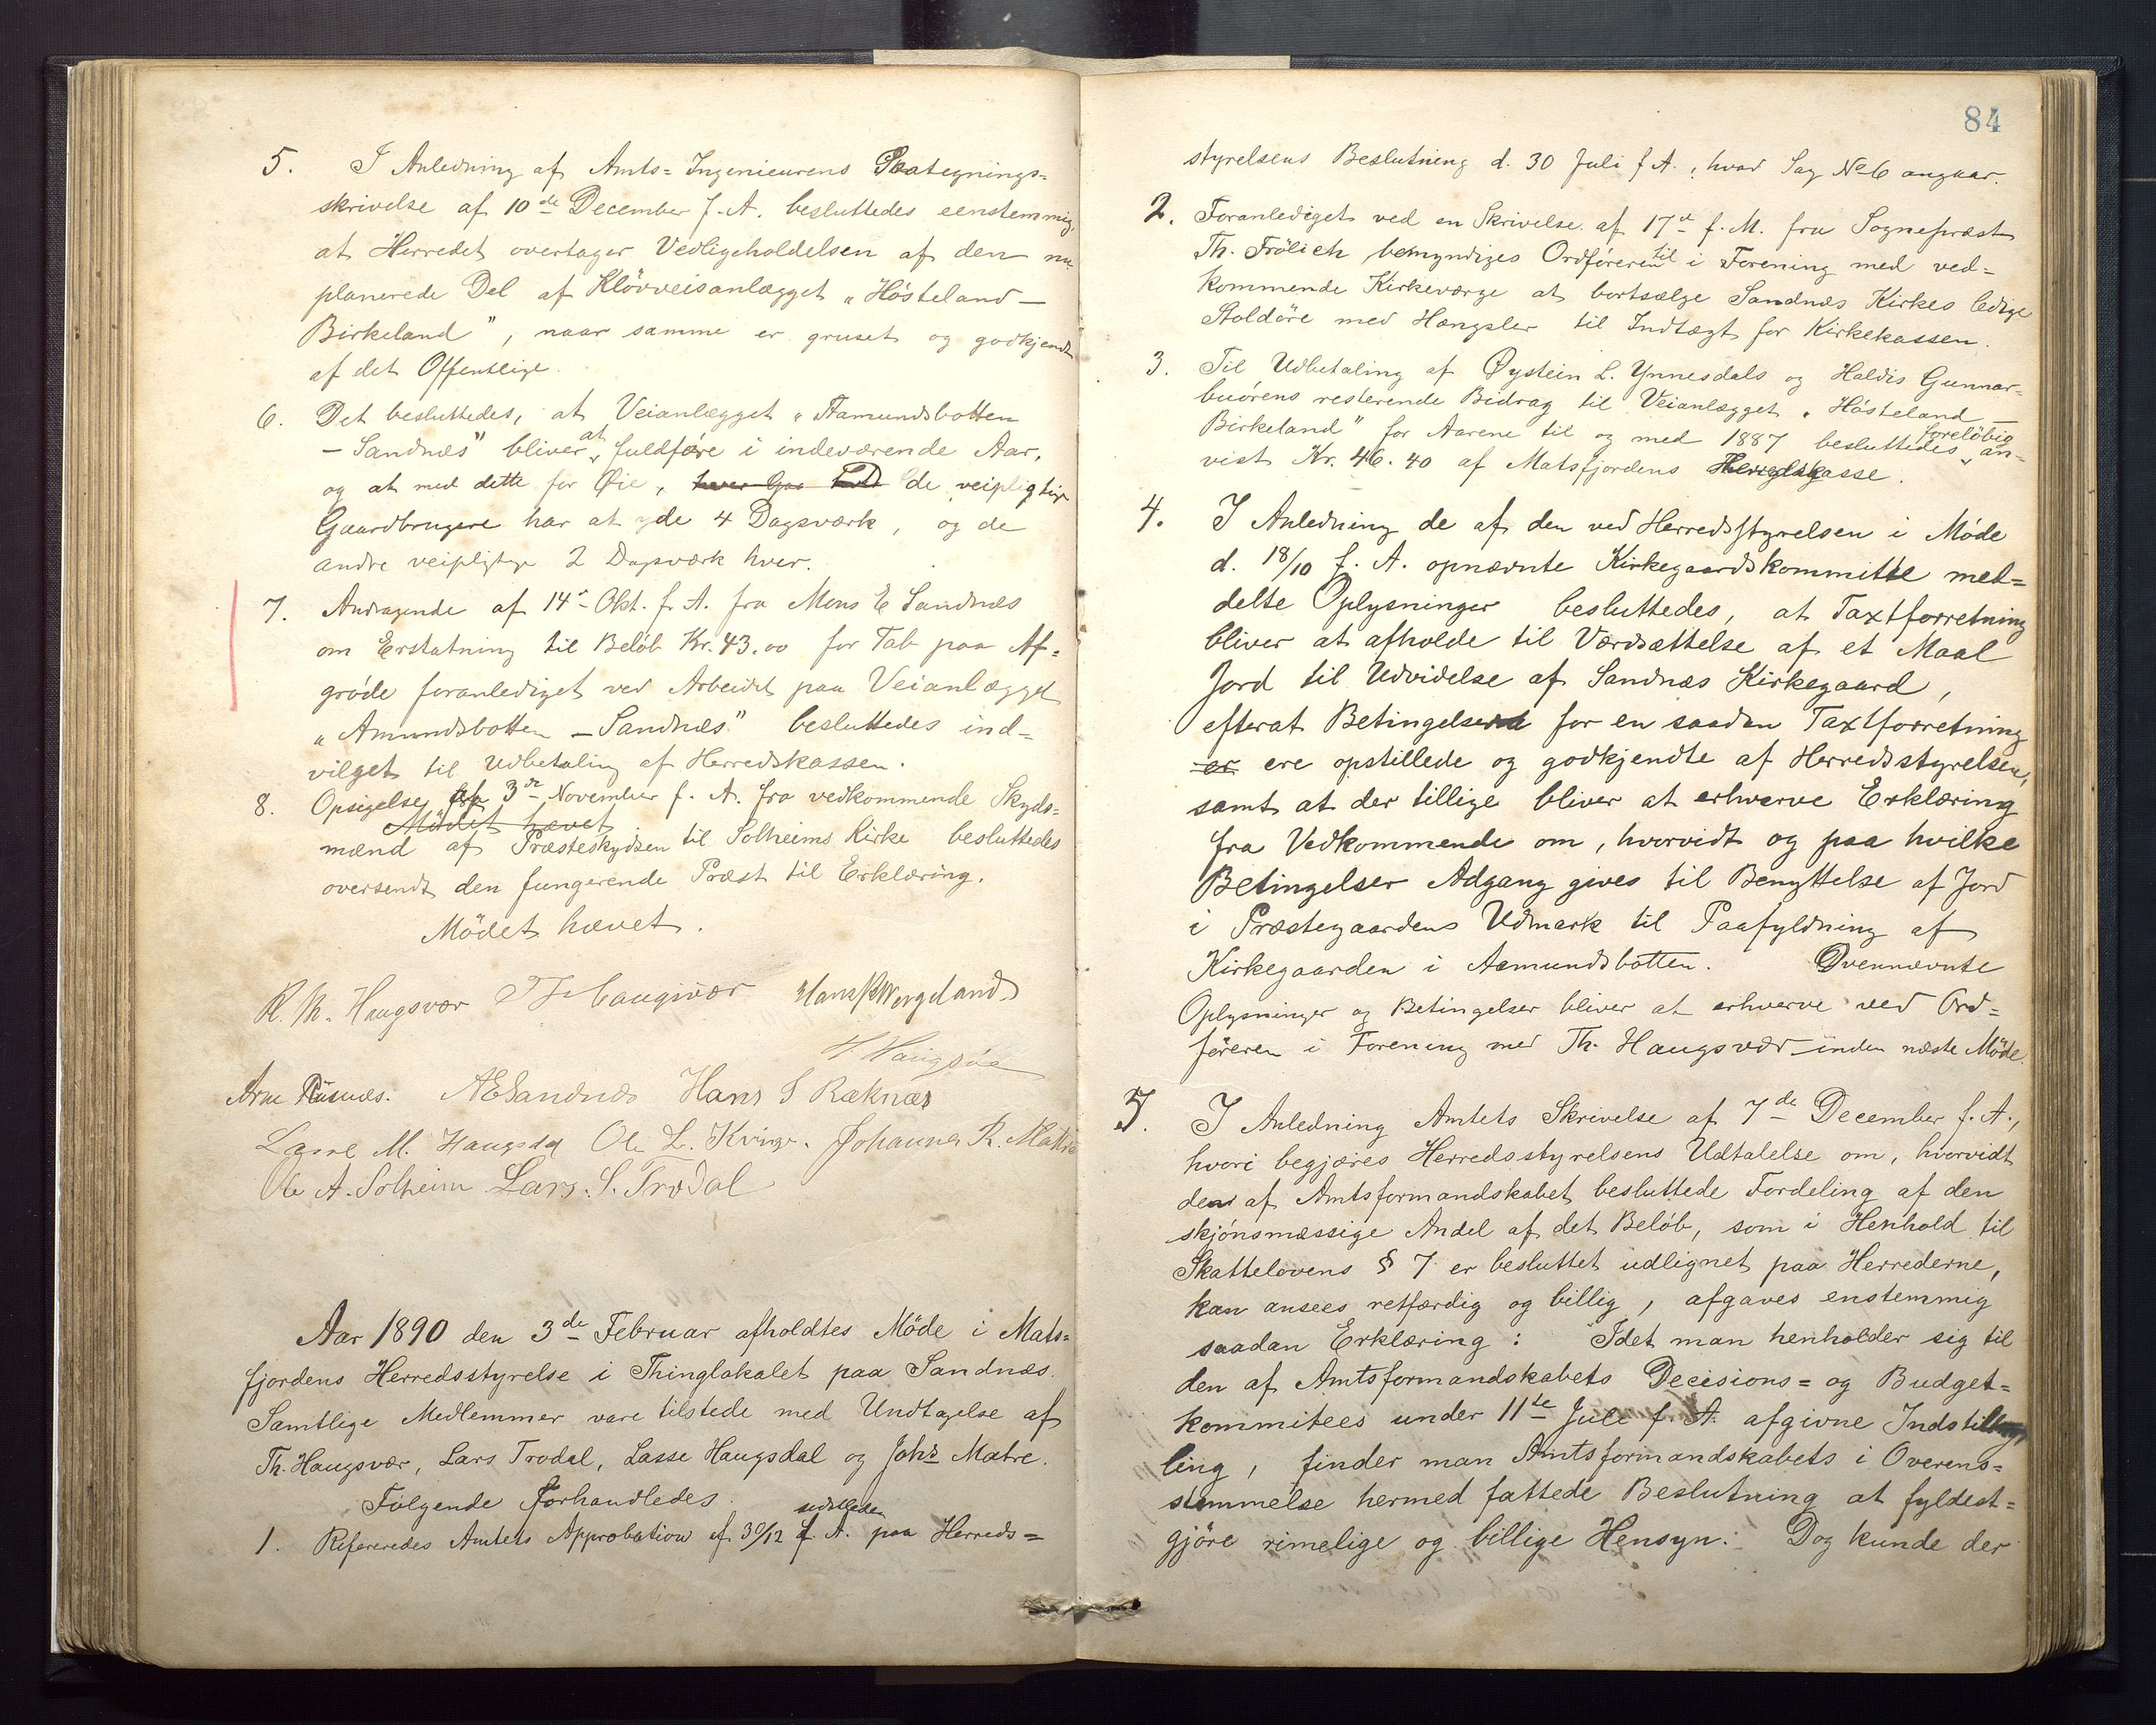 5. I Anledning af Amts-Ingenieurens Paategnings-
skrivelse af 10de December f. A. besluttedes eenstemmig,
at Herredet overtager Vedligeholdelsen af den nu
planerede Del af Klövveisanlægget „Hösteland —
Birkeland", naar samme er gruset og godkjendt
af det Offentlige.
6. Det besluttedes, at Veianlægget „Aamundsbotten
— Sandnæs" bliver at fuldføre i indeværende Aar,
og at med dette for Øie, de veipligtige
Gaardbrugere har at yde 4 Dagsværk, og de
andre veipligtige 2 Dagsværk hver.
7. Andragende af 14de Okt. f. A. fra Mons E Sandnæs
om Erstatning til Beløb Kr. 43.00 for Tab paa Af-
gröde foranlediget ved Arbeidet paa Veianlægget
„Amundsbotten — Sandnæs" besluttedes ind-
vilget til Udbetaling af Herredskassen.
8. Opsigelse af 3de November f. A. fra vedkommende Skyds-
Mödet hævet
mænd af Præsteskydsen til Solheims Kirke besluttedes
oversendt den fungerende Præst til Erklæring.
Mödet hævet.
R. M. Haugsvær Th Haugsvær Hans K Wergeland
H. Haugsöe
Arne Risnæs. AESandnæs Hans S Raknæs
Lasse M. Haugsdal Ole L. Kvinge. Johannes R. Matre
Ole A. Solheim Lars. S. Trodal
Aar 1890 den 3de Februar afholdtes Möde i Mats-
fjordens Herredsstyrelse i Thinglokalet paa Sandnæs.
Samtlige Medlemmer vare tilstede med Undtagelse af
Th. Haugsvær, Lars Trodal, Lasse Haugsdal og Johs Matre.
Følgende forhandledes.
udstedt
1. Refereredes Amtets Approbation af 30/12 f. A. paa Herreds-
84
styrelsens Beslutning d. 30 Juli f. A., hvad Sag No 6 angaar.
2. Foranlediget ved en Skrivelse af 17de f. M. fra Sognepræst
Th. Frölich bemyndiges Ordføreren til i Forening med ved-
kommende Kirkeværge at bortsælge Sandnæs Kirkes ledige
Stoldöre med Hængsler til Indtægt for Kirkekassen.
3. Til Udbetaling af Øystein L. Ynnesdals og Haldis Gunnar-
buörens resterende Bidrag til Veianlægget „Hösteland —
Birkeland" for Aarene til og med 1887 besluttedes foreløbig an-
vist Kr. 46.40 af Matsfjordens Herredskasse.
4. I Anledning de af den ved Herredsstyrelsen i Møde
d. 18/10 f. A. opnævnte Kirkegaardskommitte med-
delte Oplysninger besluttedes, at Taxtforretning
bliver at afholde til Værdsættelse af et Maal
Jord til Udvidelse af Sandnæs Kirkegaard,
efterat Betingelserne for en saadan Taxtforretning
er ere opstillede og godkjendte af Herredsstyrelsen,
samt at der tillige bliver at erhverve Erklæring
fra Vedkommende om, hvorvidt og paa hvilke
Betingelser Adgang gives til Benyttelse af Jord
i Præstegaardens Udmark til Paafyldning af
Kirkegaarden i Aamundsbotten. Ovennævnte
Oplysninger og Betingelser bliver at erhverve ved Ord-
føreren i Forening med Th. Haugsvær inden næste Møde.
5. I Anledning Amtets Skrivelse af 7de December f. A.,
hvori begjæres Herredsstyrelsens Udtalelse om, hvorvidt
den af Amtsformandskabet besluttede Fordeling af den
skjönsmæssige Andel af det Beløb, som i Henhold til
Skattelovens § 7 er besluttet udlignet paa Herrederne,
kan ansees retfærdig og billig, afgaves enstemmig
saadan Erklæring: Idet man henholder sig til
den af Amtsformandskabets Decisions- og Budget-
kommitees under 11te Juli f. A. afgivne Indstil-
ling, finder man Amtsformandskabets i Overens-
stemmelse hermed fattede Beslutning at fyldest-
gjöre rimelige og billige Hensyn: Dog kunde der